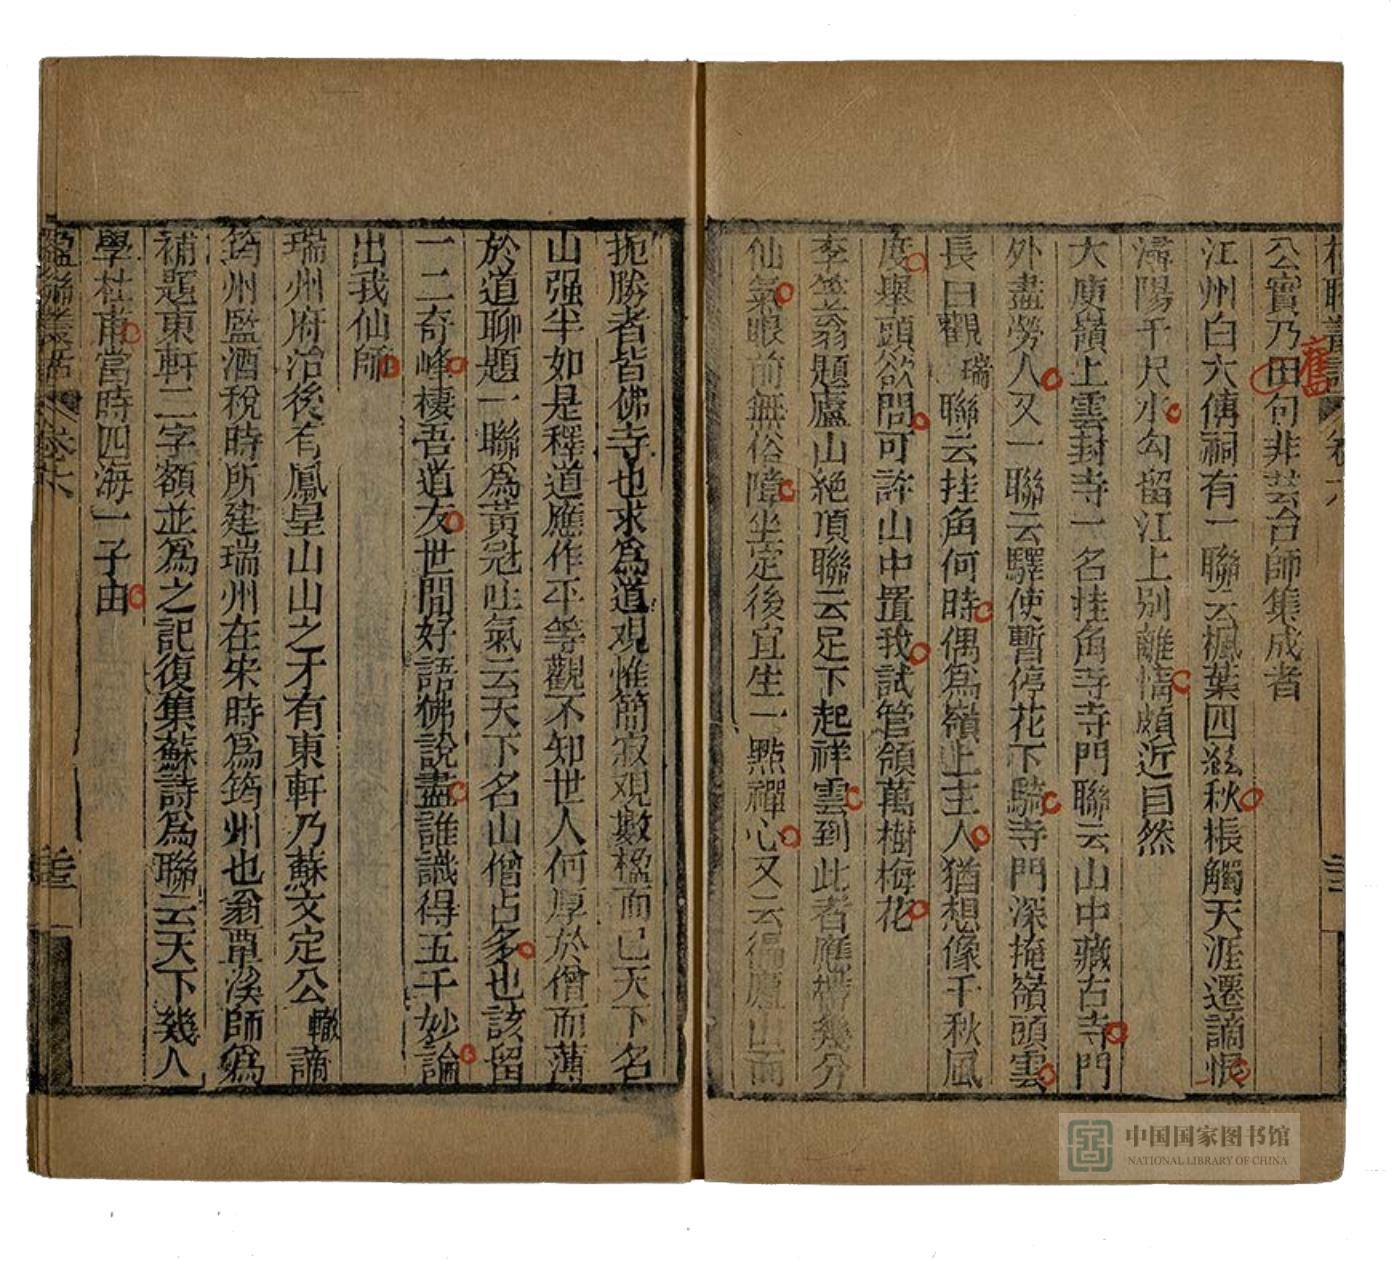 舊
公實乃田句非芸台師集成者
江州白太傅祠有一聯云楓葉四絃秋棖觸天涯遷謫恨
潯陽千尺水勾留江上別離情頗近自然
大庾嶺上雲封寺一名挂角寺寺門聯云山中藏古寺門
外盡勞人又一聯云驛使暫停花下騎寺門深掩嶺頭雲
長白觀瑞聯云挂角何時偶爲嶺上主人猶想像千秋風
度舉頭欲問可許山中置我試管領萬樹梅花
李笠翁題廬山絶頂聯云足下起祥雲到此者應帶幾分
仙氣眼前無俗障坐定後宜生一點禪心又云徧廬山而
扼勝者皆佛寺也求爲道觀惟簡寂觀數楹而已天下名
山强半如是釋道應作平等觀不知世人何厚於僧而薄
於道聊題一聯爲黃冠吐氣云天下名山僧占多也該留
一二奇峰棲吾道友世間好語佛說盡誰識得五千妙論
出我仙師
瑞州府治後有鳳皇山山之才有東軒乃蘇文定公轍謫
筠州監酒稅時所建瑞州在宋時爲筠州也翁覃溪師爲
補題東軒二字額並爲之記復集蘇詩爲聯云天下幾人
學杜甫當時四海一子由
楹聯叢話 卷六